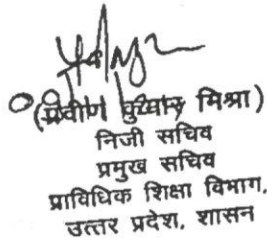 (प्रवीण कुमार मिश्रा)
निजी सचिव
प्रमुख सचिव
प्राविधिक शिक्षा विभाग,
उत्तर प्रदेश, शासन